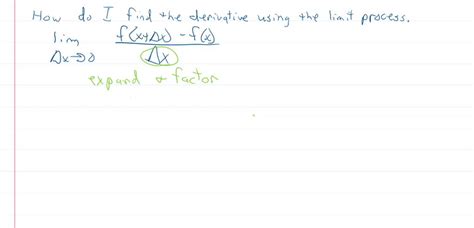 How do I find the derivative using the limit process.
lim f(x+Δx) - f(x)
Δx→0 Δx
expand & factor